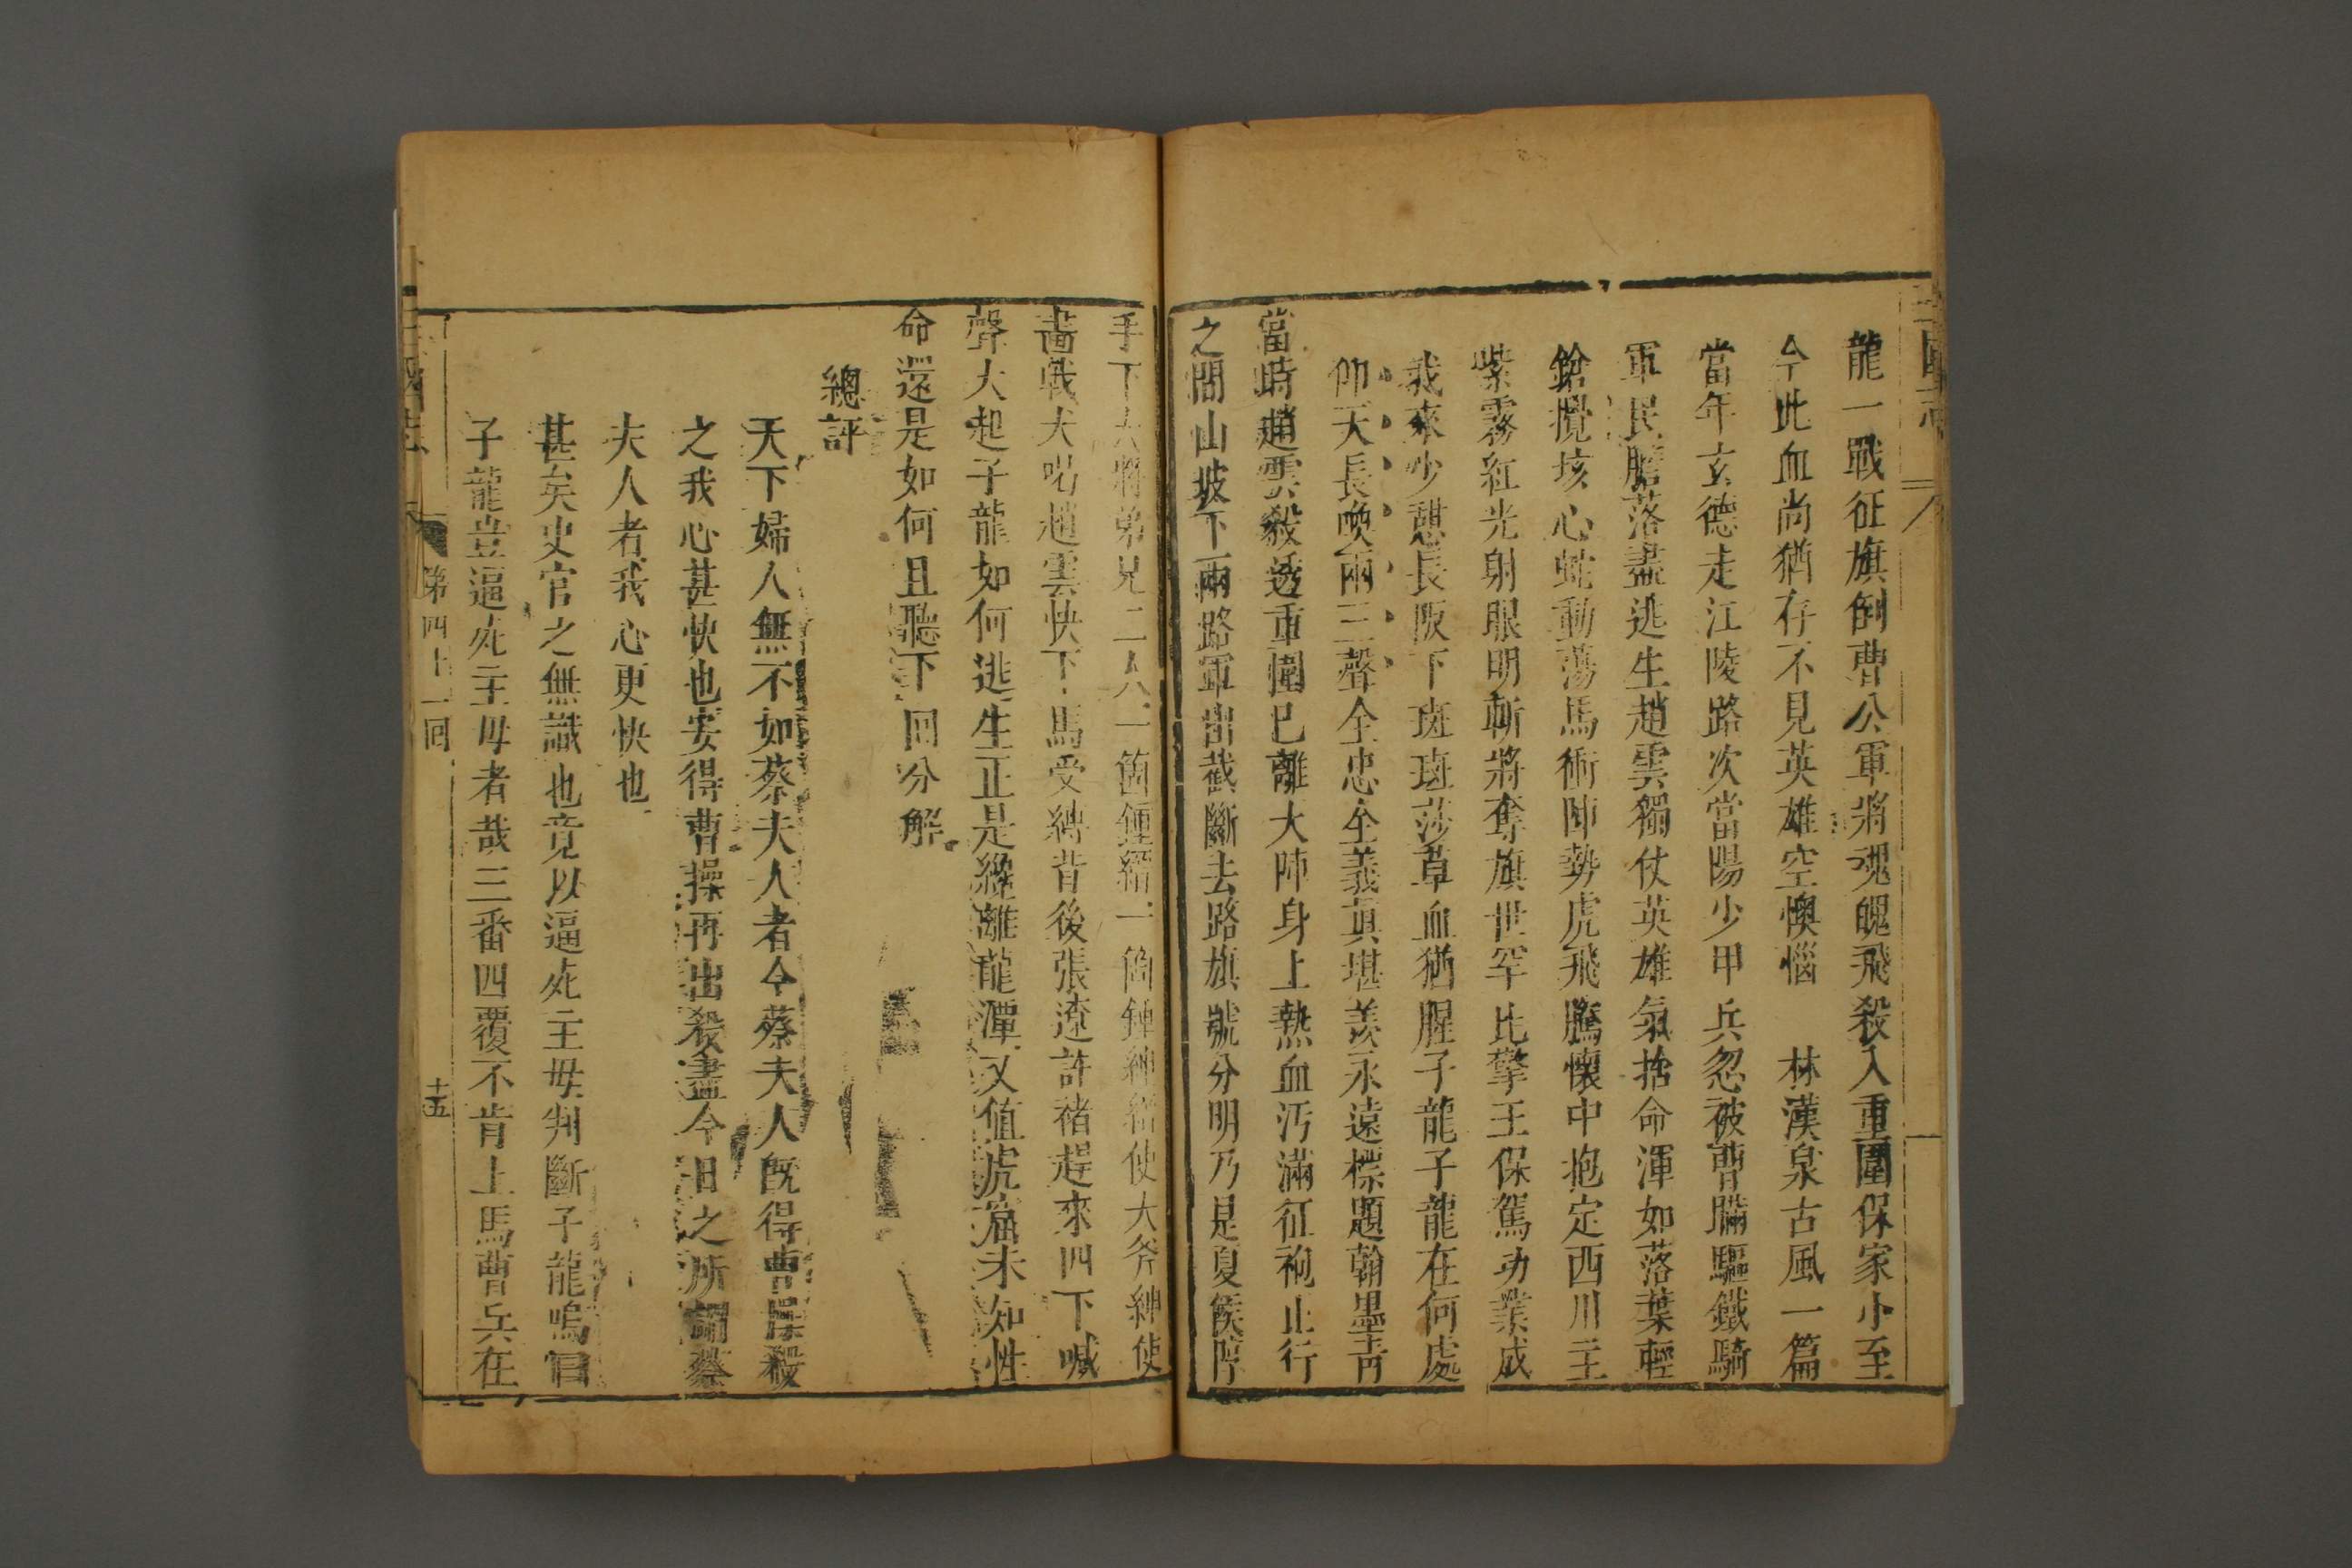 三國志
龍一戰征旗倒曹公軍將魂魄飛殺入重圍保家小至
今此血尚猶存不見英雄空懊惱　林漢泉古風一篇
當年玄德走江陵路次當陽少甲兵忽被曹瞞驅鐵騎
軍民膽落盡逃生趙雲獨仗英雄氣捨命渾如落葉輕
鎗攪垓心蛇動蕩馬衝陣勢虎飛騰懷中抱定西川主
紫霧紅光射眼明斬將奪旗世罕比擎王保駕功業成
我來少憇長阪下斑斑莎草血猶腥子龍子龍在何處
仰天長喚兩三聲全忠全義真堪羨永遠標題翰墨青
當時趙雲殺透重圍已離大陣身上熱血汚滿征袍止行
之間山坡下兩路軍出截斷去路旗號分明乃是夏侯惇
手下大將弟兄二人一箇鍾縉一箇鍾紳縉使大斧紳使
畵戟大喝趙雲快下馬受縛背後張遼許褚趕來四下喊
聲大起子龍如何逃生正是纔離龍潭又值虎窟未知性
命還是如何且聽下回分解
總評
天下婦人無不如蔡夫人者今蔡夫人既得曹操殺
之我心甚快也安得曹操再出殺盡今日之所謂蔡
夫人者我心更快也
甚矣史官之無識也竟以逼死主母判斷子龍嗚呼
子龍豈逼死主母者哉三番四覆不肯上馬曹兵在
三國志
第四十一回
十五